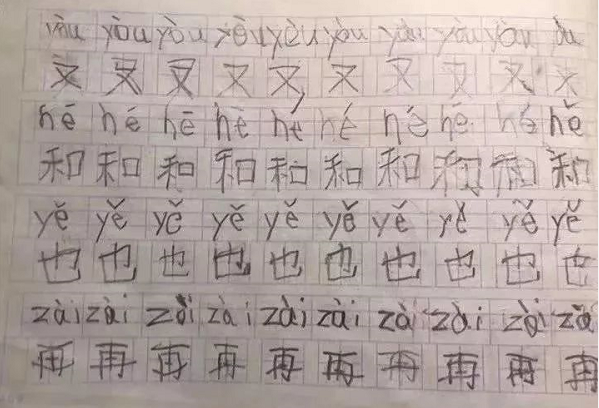 yòu yòu yòu yòu yòu yòu yòu yòu yòu
又 又 又 又 又 又 又 又 又 又
hé hé hé hé hé hé hé hé hé hě
和 和 和 和 和 和 和 和 和 和
yě yě yě yě yě yě yě yě yě yě
也 也 也 也 也 也 也 也 也 也
zài zài zài zài zài zài zài zài zài zǎ
再 再 再 再 再 再 再 再 再 再